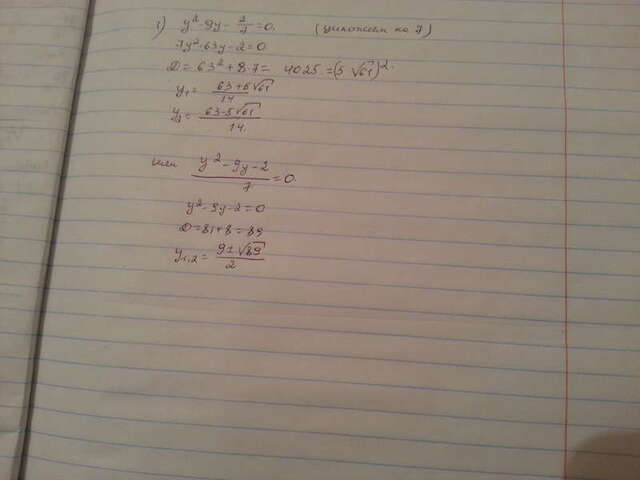 г) y² - 9y - 2/7 = 0. (умножаем на 7)
7y² - 63y - 2 = 0
D = 63² + 8·7 = 4025 = (5√61)².
y₁ = (63 + 5√61)/14
y₂ = (63 - 5√61)/14.
или (y² - 9y - 2)/7 = 0.
y² - 9y - 2 = 0
D = 81 + 8 = 89
y₁,₂ = (9 ± √89)/2